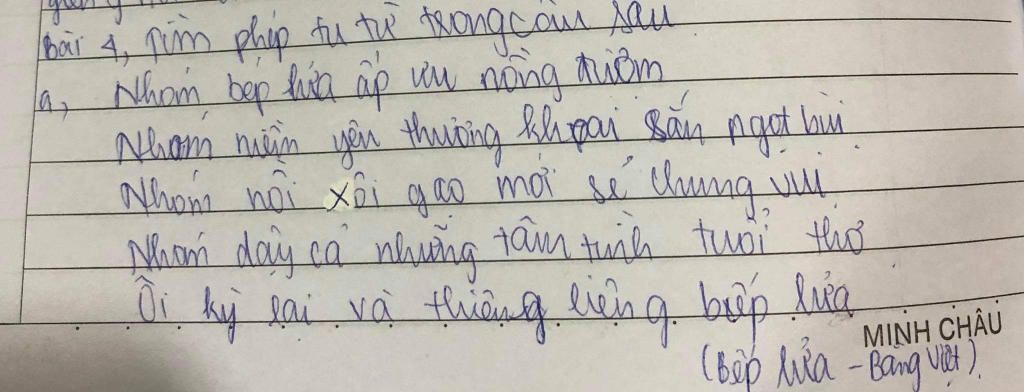 Bài 4, Tìm phép tu từ trong câu sau
a, Nhóm bếp lửa ấp iu nồng đượm
Nhóm niềm yêu thương khoai sắn ngọt bùi
Nhóm nồi xôi gạo mới sẻ chung vui
Nhóm dậy cả những tâm tình tuổi thơ
Ôi kỳ lại và thiêng liêng bếp lửa
MINH CHÂU
(Bếp lửa - Bằng Việt).